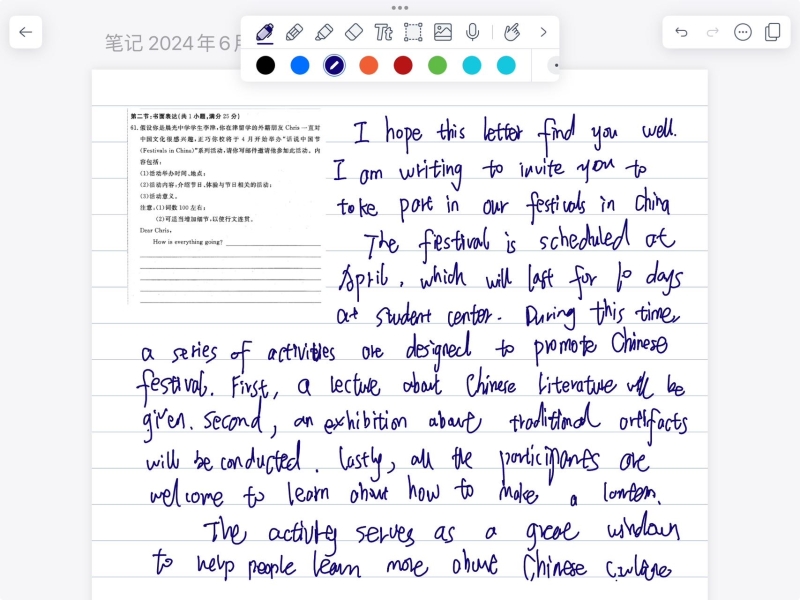 笔记 2024年6月
Tt
第二节:书面表达(共1小题,满分25分)
41.假设你是晨光中学学生李津,你在津留学的外籍朋友 Chris 一直对
中国文化很感兴趣,正巧你校将于4月开始举办“话说中国节
(Festivals in China)”系列活动,请你写邮件邀请他参加此活动。内
容包括:
(1)活动举办时间、地点;
(2)活动内容:介绍节日、体验与节日相关的活动;
(3)活动意义。
注意:(1)词数100左右;
(2)可适当增加细节,以使行文连贯。
Dear Chris,
How is everything going?
I hope this letter find you well.
I am writing to invite you to
take part in our festivals in China
The festival is scheduled at
April, which will last for 10 days
at student center. During this time,
a series of activities are designed to promote Chinese
festival. First, a lecture about Chinese literature will be
given. Second, an exhibition about traditional artifacts
will be conducted. Lastly, all the participants are
welcome to learn about how to make a lantern.
The activity serves as a great window
to help people learn more about Chinese culture